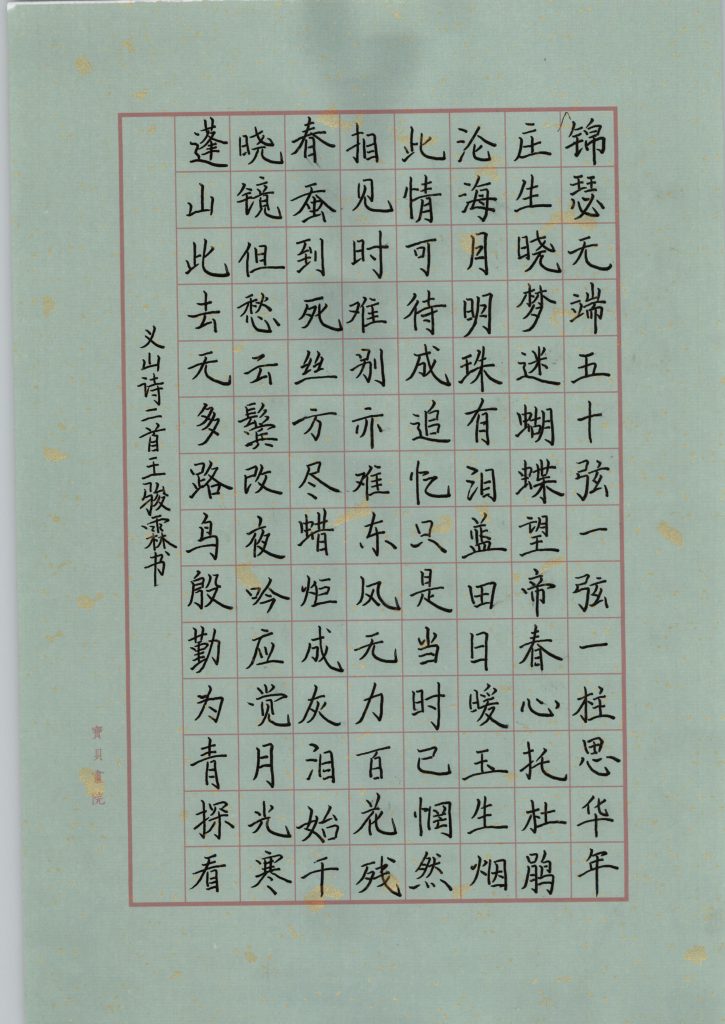 锦瑟无端五十弦一弦一柱思华年
庄生晓梦迷蝴蝶望帝春心托杜鹃
沦海月明珠有泪蓝田日暖玉生烟
此情可待成追忆只是当时已惘然
相见时难别亦难东风无力百花残
春蚕到死丝方尽蜡炬成灰泪始干
晓镜但愁云鬓改夜吟应觉月光寒
蓬山此去无多路鸟殷勤为青探看
义山诗二首王骏霖书
寶貝畫院